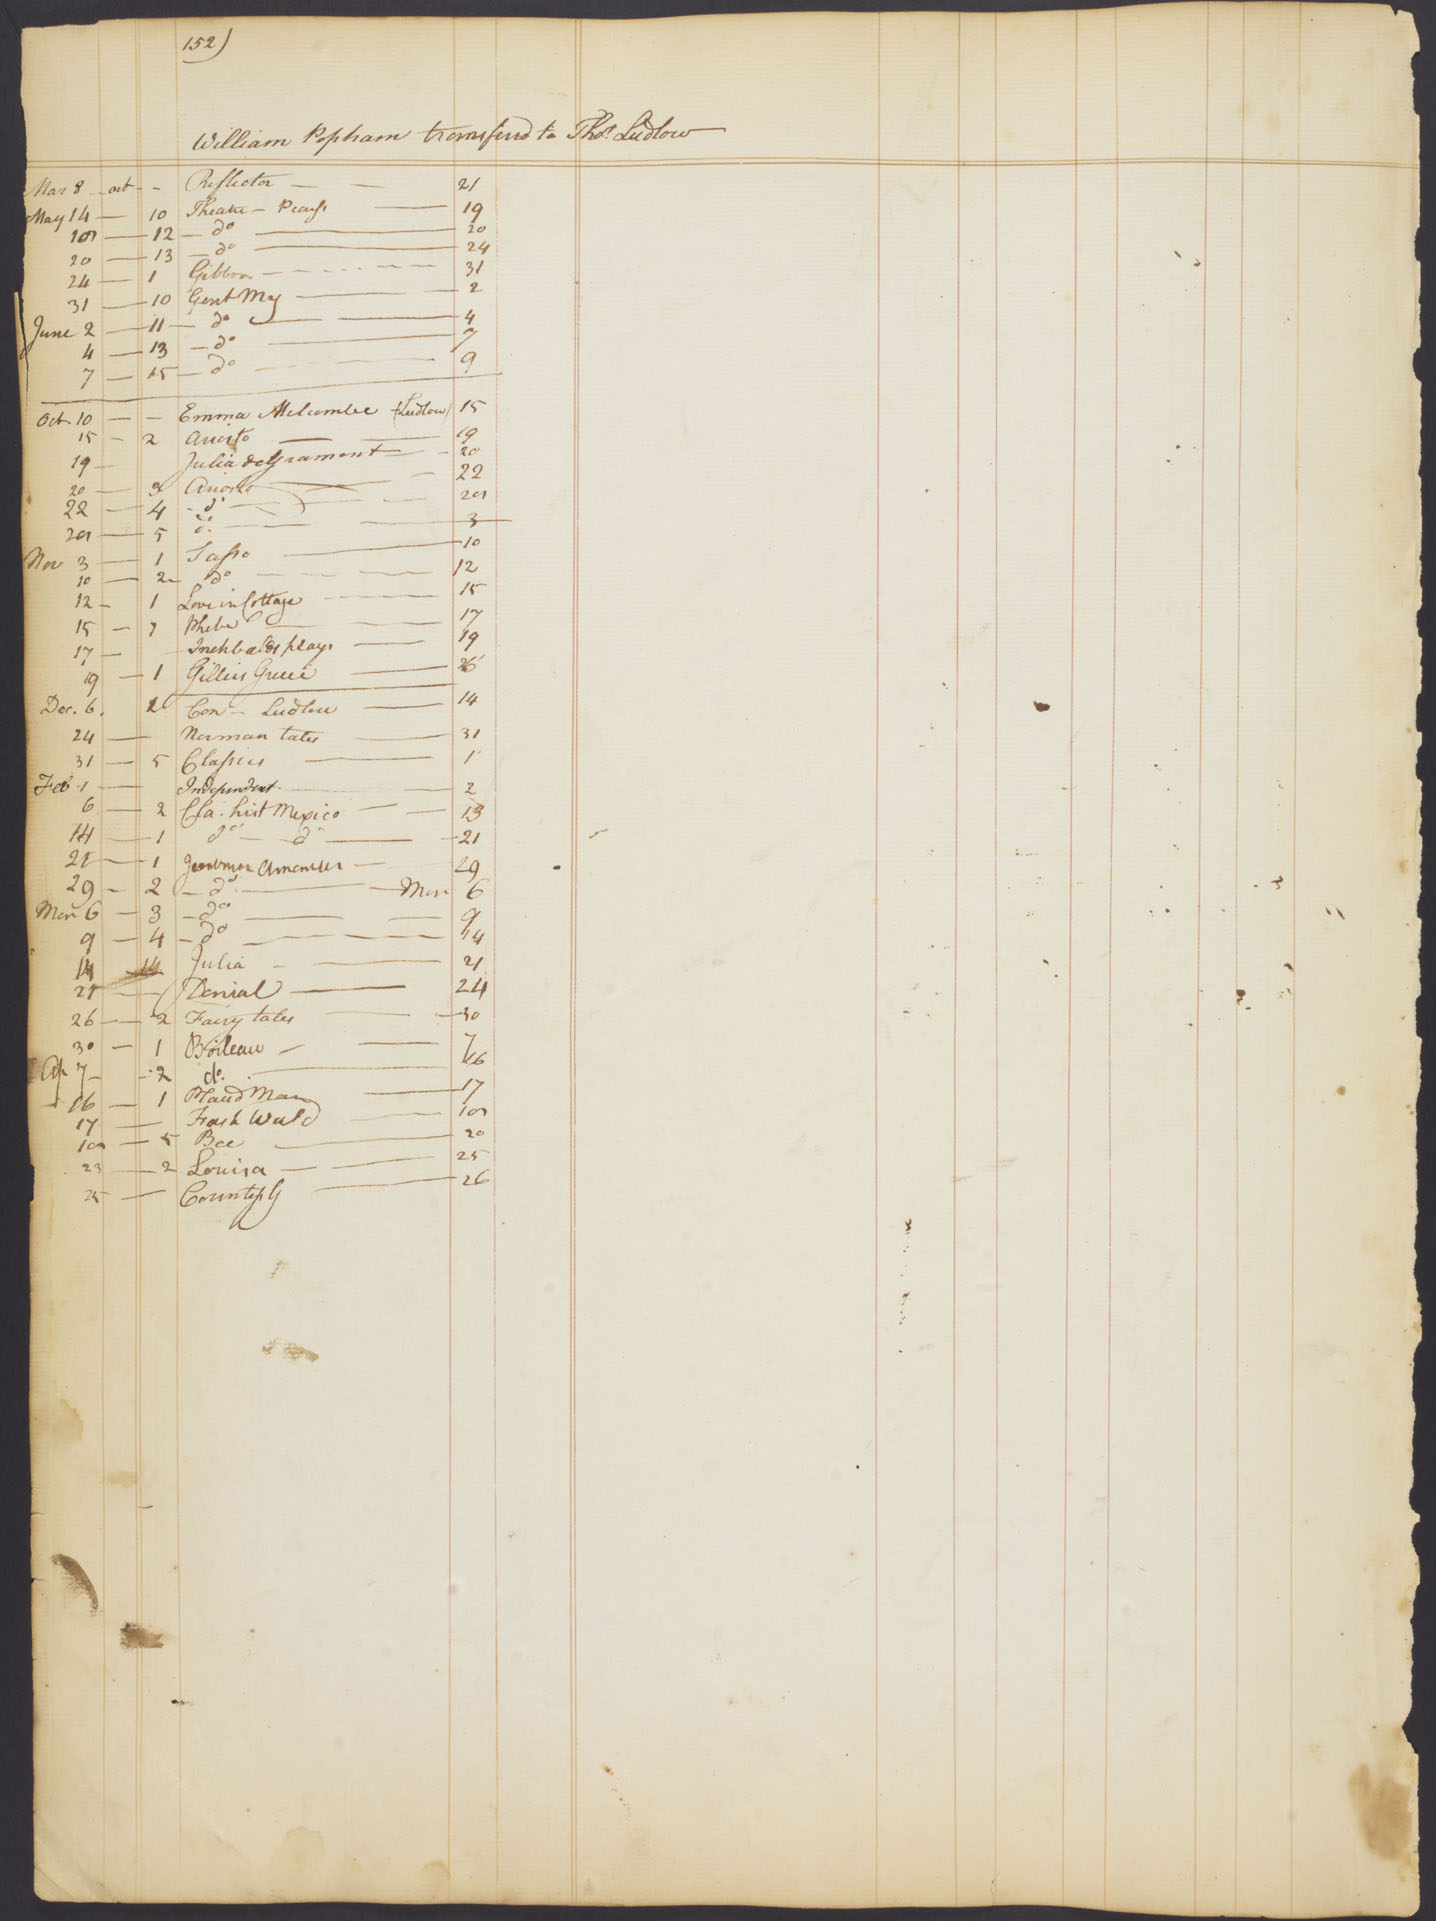 152)
William Popham transferd to Thos. Ludlow
Mar 8 - oct - - Reflector - - 21
May 14 - 10 Theatre - 19
18 - 12 - do - 20
20 - 13 - do - 24
24 - 1 Gibbon - 31
31 - 10 Gent Mag - 2
June 2 - 11 - do - 4
4 - 13 - do - 7
7 - 15 - do - 9
Oct 10 - - Emma Melcombe (Ludlow) 15
15 - 2 Ariosto - 19
19 - Julia de Gramont - 20
20 - 3 Ariosto - 22
22 - 4 - do - 28
28 - 5 do - 3
Nov 3 - 1 Tasso - 10
10 - 2 - do - 12
12 - 1 Love in Cottage - 15
15 - 1 Phebe - 17
17 - Inchbalds plays - 19
19 - 1 - 26
Dec. 6. 2 Con - Ludlow - 14
24 - Norman tales - 31
31 - 5 Classics - 1
Feb 1 - Independent - 2
6 - 2 Cla. hist Mexico - 13
14 - 1 do - do - 21
21 - 1 - 29
29 - 2 - do - Mar 6
Mar 6 - 3 - do - 9
9 - 4 - do - 14
14 14 Julia - 21
21 - Denial - 24
26 - 2 Fairy tales - 30
30 - 1 Boileau - 7
Ap 7 - 2 do. - 16
16 - 1 Plaid Man - 17
17 - - 18
18 - 5 Bee - 20
23 - 2 Louisa - 25
25 - Countess G - 26